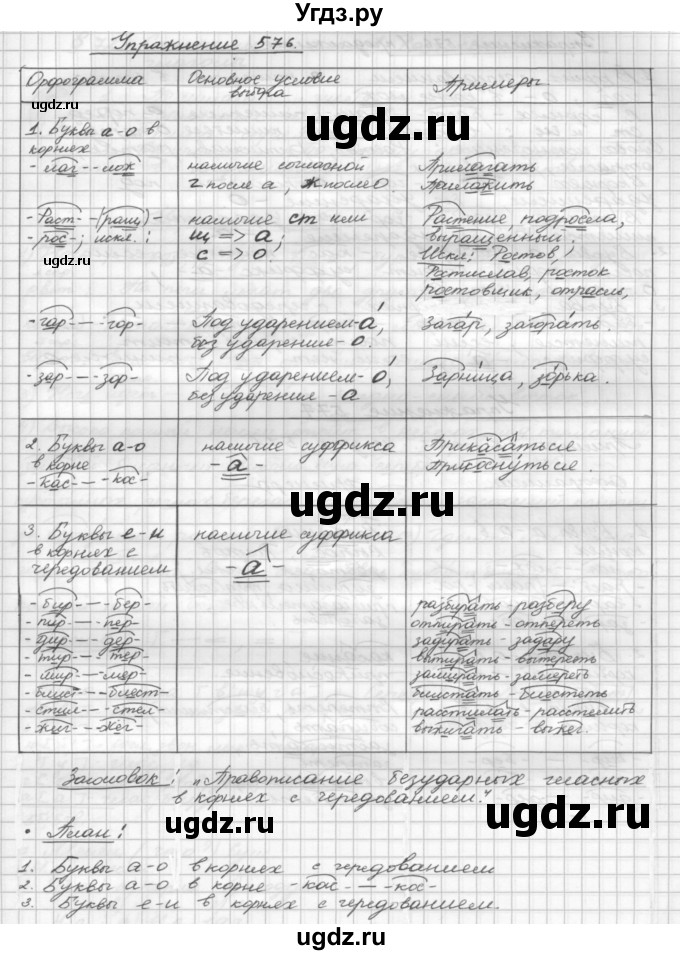 Угдз.ру
Упражнение 576.
Орфограмма Основное условие выбора Примеры
ugdz.ru
ugdz.ru
1. Буквы а-о в
корнях
- лаг - - лож наличие согласной Прилагать
г после а, ж после о. Приложить
- Раст - - (ращ) - наличие ст или Растение, подросла,
- рос - ; искл.: щ => а; выращенный.
с => о Искл: Ростов,
Ростислав, росток
ростовщик, отрасль,
ugdz.ru
- гар - — - гор - Под ударением - а, Загар, загорать.
без ударения - о.
ugdz.ru
- зар - — - зор - Под ударением - о, Зарница, зорька.
без ударения - а
2. Буквы а-о наличие суффикса Прикасаться
в корне - а - Прикоснуться.
- кас - — - кос -
ugdz.ru
ugdz.ru
3. Буквы е-и наличие суффикса
в корнях с - а -
чередованием
- бир - — - бер - разбирать - разберу
- пир - — - пер - отпирать - отпереть
- дир - — - дер - задирать - задеру
- тир - — - тер - вытирать - вытереть
- мир - — - мер - замирать - замереть
- блист - — - блест - блистать - блестеть
- стил - — - стел - расстилать - расстелить
- жиг - — - жег - выжигать - выжег.
ugdz.ru
ugdz.ru
Заголовок: „Правописание безударных гласных
в корнях с чередованием."
ugdz.ru
ugdz.ru
• План:
1. Буквы а-о в корнях с чередованием
2. Буквы а-о в корне - кас - — - кос -
3. Буквы е-и в корнях с чередованием.
ugdz.ru
ugdz.ru